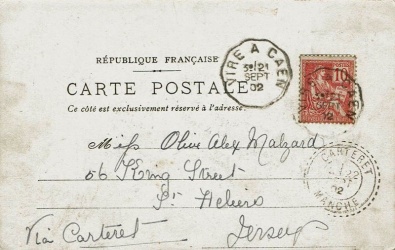 RÉPUBLIQUE FRANÇAISE
CARTE POSTALE
Ce côté est exclusivement réservé à l'adresse
VIRE A CAEN
21
SEPT
02
10
Miss Olive Alex Malzard
56 King Street
St Heliers
Via Carteret Jersey
CARTERET
02
MANCHE